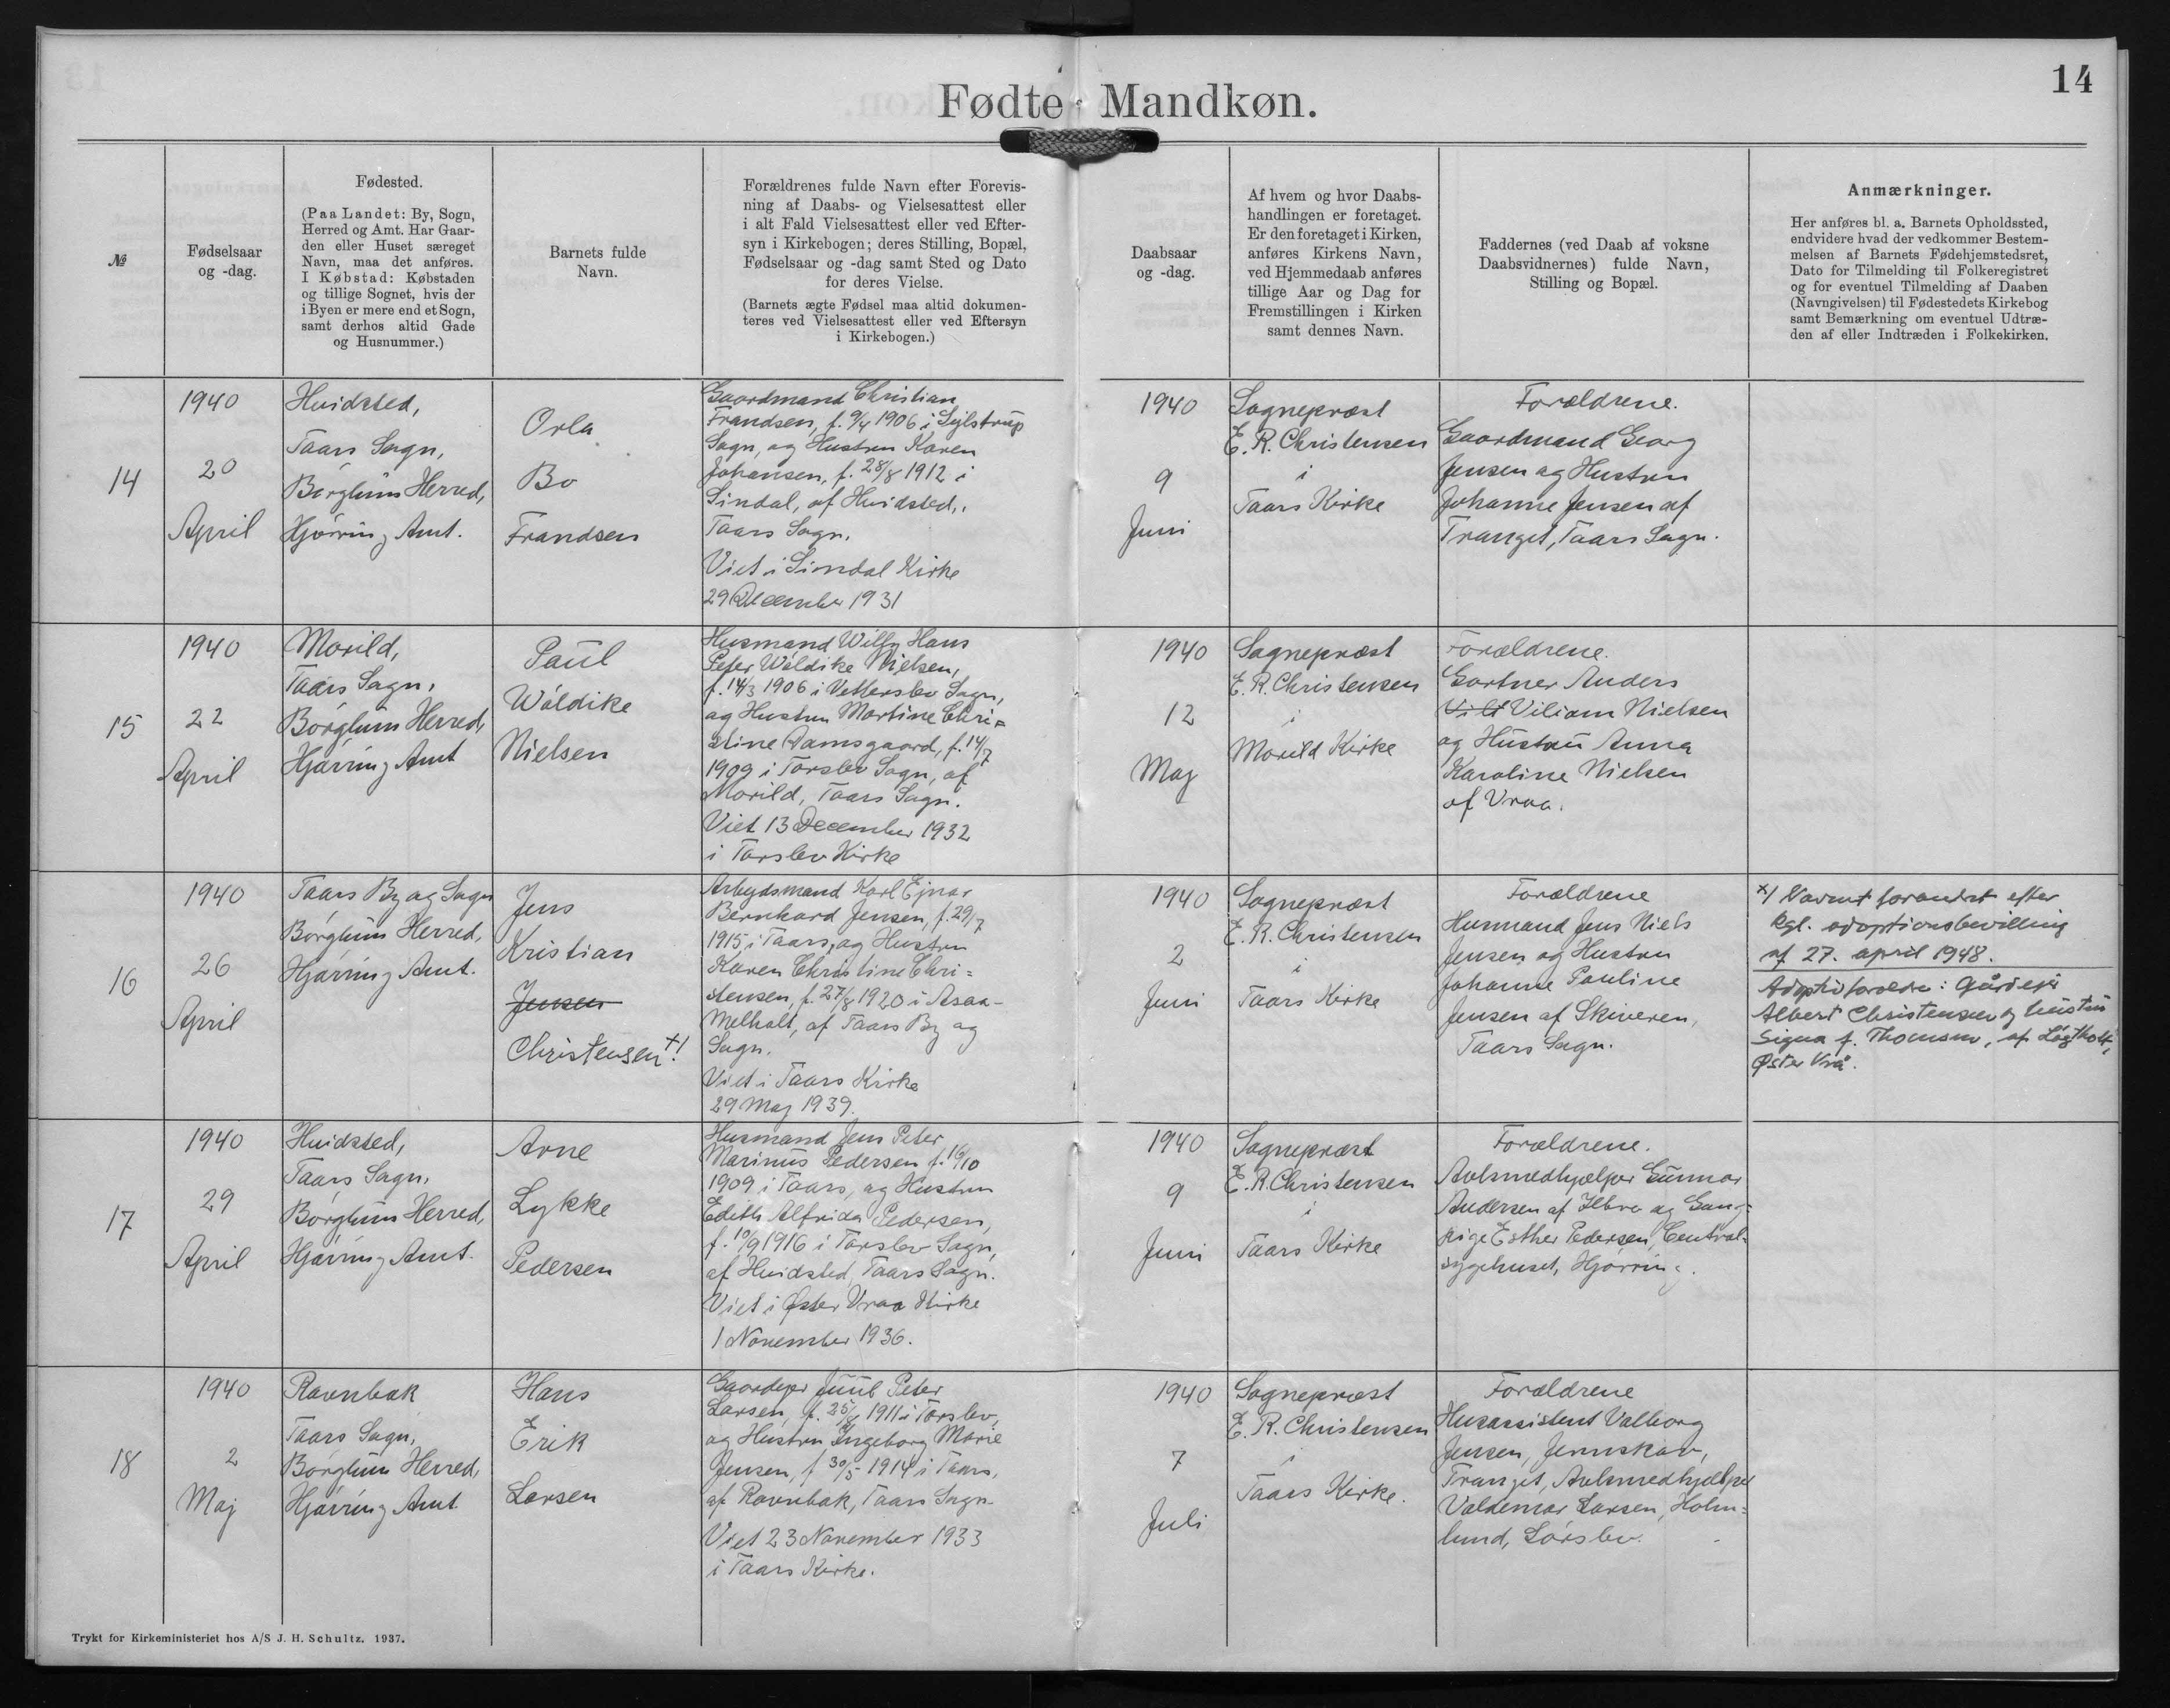 14
Fødte Mandkøn.
№
Fødselsaar
og -dag.
Fødested.
(Paa Landet: By, Sogn,
Herred og Amt. Har Gaar-
den eller Huset særeget
Navn, maa det anføres.
I Købstad: Købstaden
og tillige Sognet, hvis der
i Byen er mere end et Sogn,
samt derhos altid Gade
og Husnummer.)
Barnets fulde
Navn.
Forældrenes fulde Navn efter Forevis-
ning af Daabs- og Vielsesattest eller
i alt Fald Vielsesattest eller ved Efter-
syn i Kirkebogen; deres Stilling, Bopæl,
Fødselsaar og -dag samt Sted og Dato
for deres Vielse.
(Barnets ægte Fødsel maa altid dokumen-
teres ved Vielsesattest eller ved Eftersyn
i Kirkebogen.)
Daabsaar
og -dag.
Af hvem og hvor Daabs-
handlingen er foretaget.
Er den foretaget i Kirken,
anføres Kirkens Navn,
ved Hjemmedaab anføres
tillige Aar og Dag for
Fremstillingen i Kirken
samt dennes Navn.
Faddernes (ved Daab af voksne
Daabsvidnernes) fulde Navn,
Stilling og Bopæl.
Anmærkninger.
Her anføres bl. a. Barnets Opholdssted,
endvidere hvad der vedkommer Bestem-
melsen af Barnets Fødehjemstedsret,
Dato for Tilmelding til Folkeregistret
og for eventuel Tilmelding af Daaben
(Navngivelsen) til Fødestedets Kirkebog
samt Bemærkning om eventuel Udtræ-
den af eller Indtræden i Folkekirken.
14
1940
20
April
Hvidsted,
Taars Sogn,
Børglum Herred,
Hjørring Amt.
Orla
Bo
Frandsen
Gaardmand Christian
Frandsen, f. 9/4 1906 i Sejlstrup
Sogn, og Hustru Karen
Johansen, f. 28/8 1912 i
Sindal, af Hvidsted,
Taars Sogn.
Viet i Sindal Kirke
29 December 1931
1940
9
Juni
Sognepræst
E. R. Christensen
i
Taars Kirke
Forældrene.
Gaardmand Georg
Jensen og Hustru
Johanne Jensen af
Tranget, Taars Sogn.
15
1940
22
April
Morild,
Taars Sogn,
Børglum Herred,
Hjørring Amt
Paul
Wøldike
Nielsen
Husmand Willy Hans
Peter Wøldike Nielsen,
f. 14/3 1906 i Vetterslev Sogn,
og Hustru Martine Chri=
stine Damsgaard, f. 14/7
1909 i Torslev Sogn, af
Morild, Taars Sogn.
Viet 13 December 1932
i Torslev Kirke
1940
12
Maj
Sognepræst
E. R. Christensen
i
Morild Kirke
Forældrene.
Gartner Anders
Vilt Viliam Nielsen
og Hustru Anna
Karoline Nielsen
af Vraa.
16
1940
26
April
Taars By og Sogn
Børglum Herred,
Hjørring Amt.
Jens
Kristian
Jensen
Christensen x)!
Arbejdsmand Karl Ejnar
Bernhard Jensen, f. 29/7
1915 i Taars, og Hustru
Karen Christine Chri=
stensen, f. 27/8 1920 i Asaa-
Melholt, af Taars By og
Sogn.
Viet i Taars Kirke
29 Maj 1939.
1940
2
Juni
Sognepræst
E. R. Christensen
i
Taars Kirke
Forældrene
Husmand Jens Niels
Jensen og Hustru
Johanne Pauline
Jensen af Skiveren,
Taars Sogn.
x) Navnet forandret efter
kgl. adoptionsbevilling
af 27. april 1948.
Adoptivforældre: Gårdejer
Albert Christensen og hustru
Signa f. Thomsen, af Løgtholt,
Øster Vrå.
17
1940
29
April
Hvidsted,
Taars Sogn,
Børglum Herred,
Hjørring Amt.
Arne
Lykke
Pedersen
Husmand Jens Peter
Marinus Pedersen f. 16/10
1909 i Taars, og Hustru
Edith Alfrida Pedersen,
f. 10/9 1916 i Torslev Sogn,
af Hvidsted, Taars Sogn.
Viet i Øster Vraa Kirke
1 November 1936.
1940
9
Juni
Sognepræst
E. R. Christensen
i
Taars Kirke
Forældrene.
Avlsmedhjælper Gunnar
Andersen af Ilbro og Gang=
pige Esther Pedersen, Central=
sygehuset, Hjørring.
18
1940
2
Maj
Ravnbak
Taars Sogn,
Børglum Herred,
Hjørring Amt
Hans
Erik
Larsen
Gaardejer Juul Peter
Larsen, f. 25/8 1911 i Torslev,
og Hustru Ingeborg Marie
Jensen, f. 30/5 1914 i Taars,
af Ravnbak, Taars Sogn.
Viet 23 November 1933
i Taars Kirke.
1940
7
Juli
Sognepræst
E. R. Christensen
i
Taars Kirke.
Forældrene
Husassistent Valborg
Jensen,
Tranget, Avlsmedhjælper
Valdemar Larsen, Holm=
lund, Lørslev.
Trykt for Kirkeministeriet hos A/S J. H. Schultz. 1937.